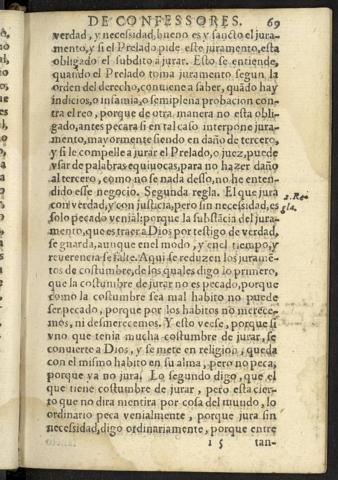 DE CONFESSORES. 69
verdad, y necessidad, bueno es y sancto el jura-
mento, y si el Prelado pide este juramento, esta
obligado el subdito a jurar. Esto se entiende,
quando el Prelado toma juramento segun la
orden del derecho, conuiene a saber, quãdo hay
indicios, o infamia, o semiplena probacion con-
tra el reo, porque de otra manera no esta obli-
gado, antes pecara si en tal caso interpone jura-
mento, mayormente siendo en daño de tercero,
y si le compelle a jurar el Prelado, o juez, puede
vsar de palabras equiuocas, para no hazer daño
al tercero, como no se nada desso, no he enten-
dido esse negocio. Segunda regla. El que jura
con verdad, y con justicia, pero sin necessidad, es
solo pecado venial: porque la substãcia del jura-
mento, que es traer a Dios por testigo de verdad,
se guarda, aunque en el modo, y en el tiempo, y
reuerencia se falte. Aqui se reduzen los juramẽ-
tos de costumbre, de los quales digo lo primero,
que la costumbre de jurar no es pecado, porque
como la costumbre sea mal habito no puede
ser pecado, porque por los habitos no merece-
mos, ni desmerecemos. Y esto vese, porque si
vno que tenia mucha costumbre de jurar, se
conuierte a Dios, y se mete en religion, queda
con el mismo habito en su alma, pero no peca,
porque ya no jura. Lo segundo digo, que el
que tiene costumbre de jurar, pero esta cier-
to que no dira mentira por cosa del mundo, lo
ordinario peca venialmente, porque jura sin
necessidad, digo ordinariamente, porque entre
I 5 tan-
2. Re-
gla.